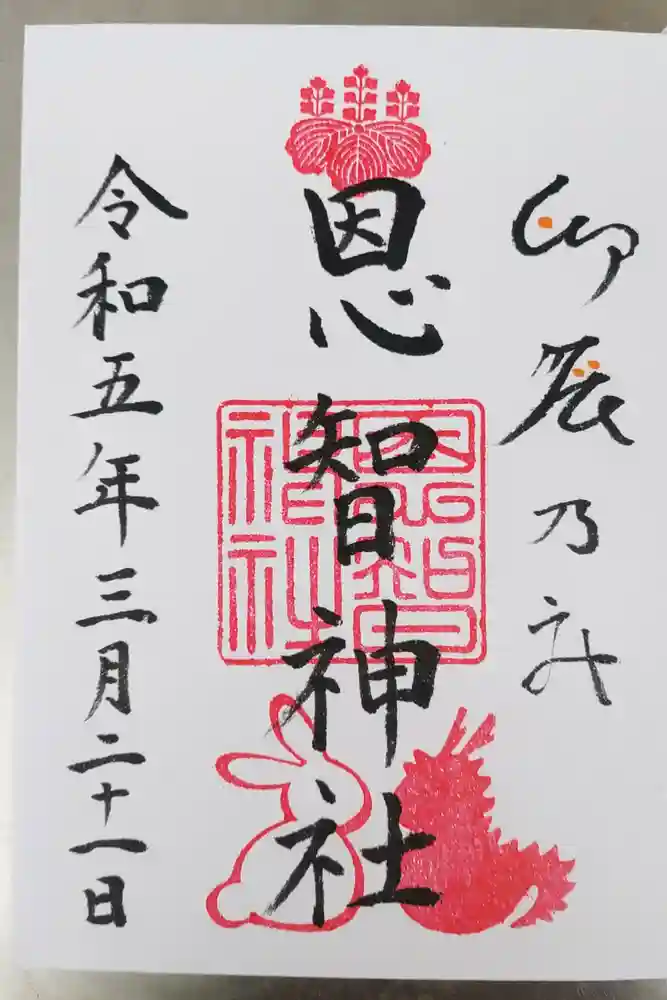 卯辰乃
恩智神社
恩智
神社
令和五年三月二十一日